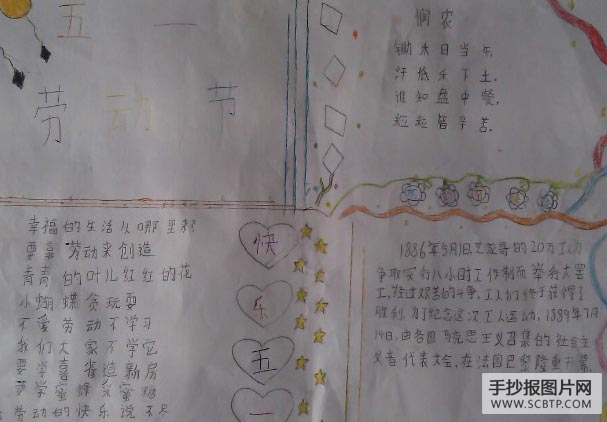 五 一
劳 动 节
悯农
锄禾日当午,
汗低禾下土,
谁知盘中餐,
粒粒皆辛苦.
幸福的生活从哪里来
要靠劳动来创造
青青的叶儿红红的花
小蝴蝶贪玩耍
不爱劳动不学习
我们大家不学它
要学喜雀造新房
要学蜜蜂采蜜糖
劳动的快乐说不尽
快
乐
五
一
1886年5月1日,芝加哥的20万工人
争取实行八小时工作制而举行大罢
工,经过艰苦的斗争,工人们终于获得了
胜利.为了纪念这次工人运动,1889年7月
14日,由各国马克思主义召集的社会主
义者代表大会,在法国巴黎隆重开幕.
手抄报图片网
WWW.SCBTP.COM